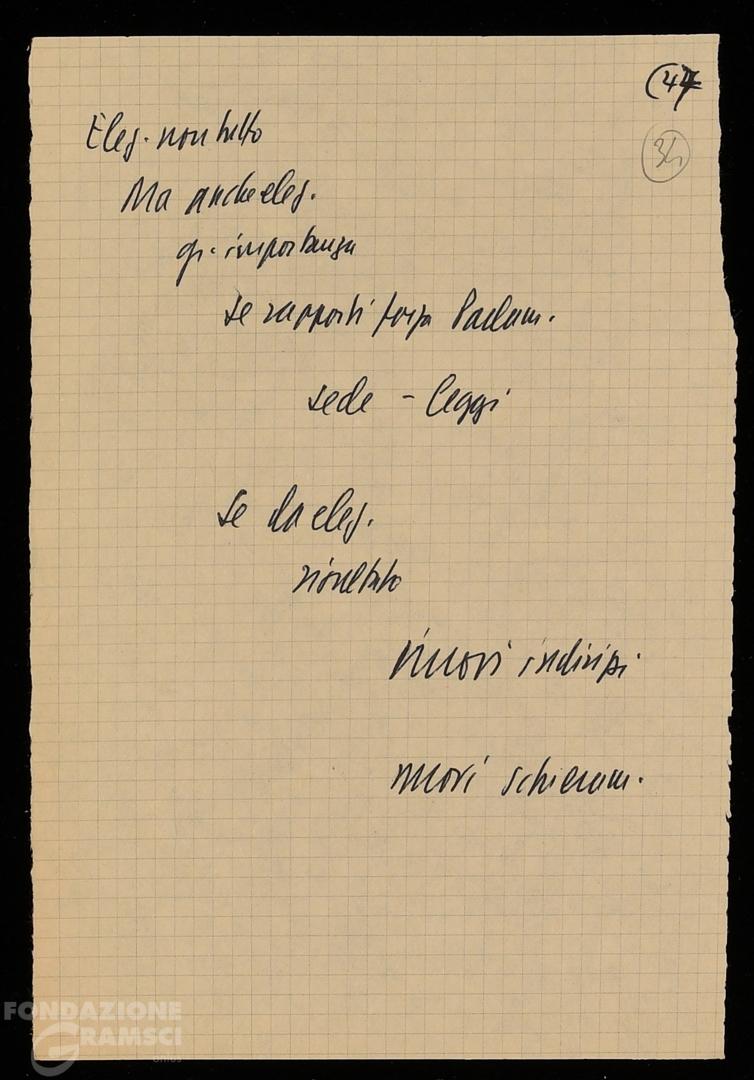 (47
34
Elez. non tutto
Ma anche elez.
gr. importanza
se rapporti forza Parlam.
sede - leggi
Se da elez.
risultato
nuovi indirizzi
nuovi schieram.
FONDAZIONE
GRAMSCI
onlus